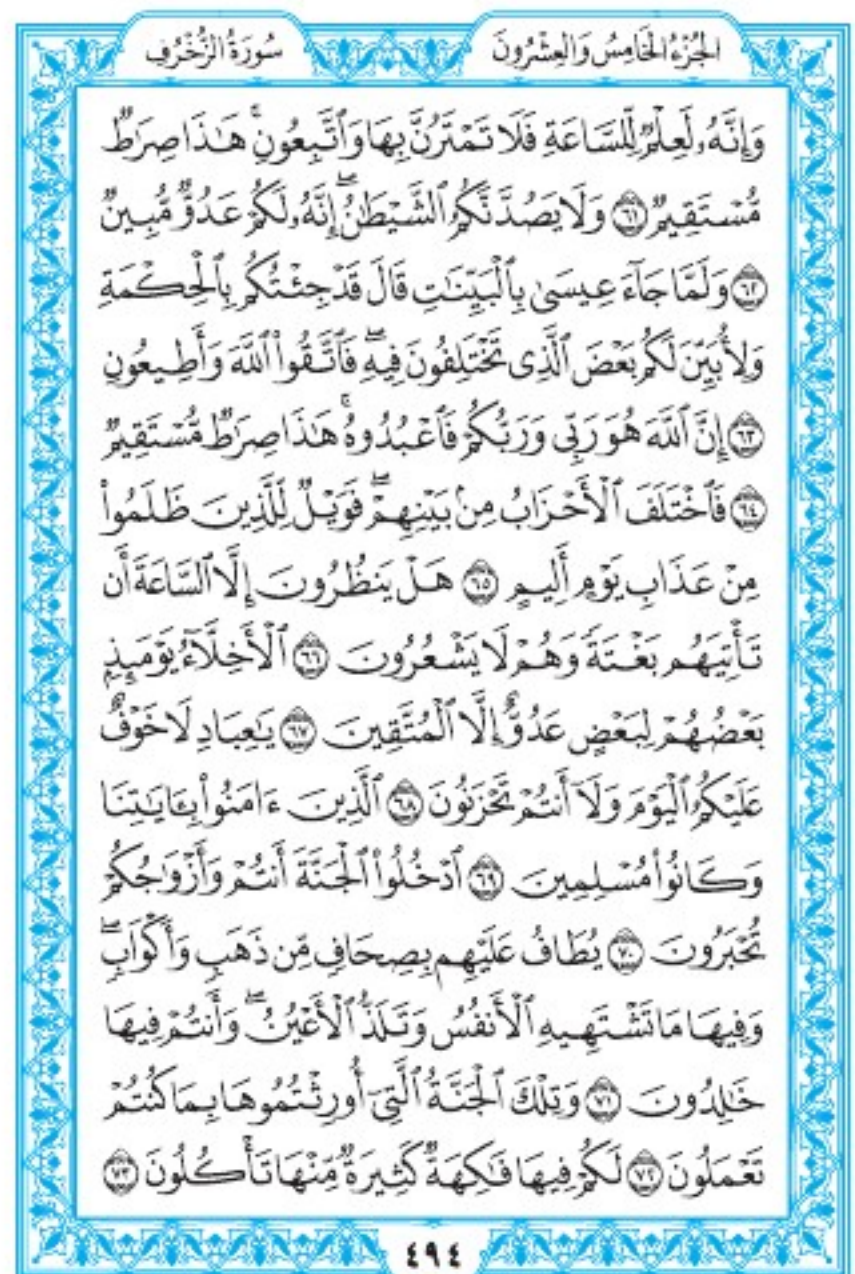 الجُزْءُ الخَامِسُ وَالعِشْرُونَ
سُورَةُ الزُّخْرُفِ
وَإِنَّهُۥ لَعِلْمٌ لِّلسَّاعَةِ فَلَا تَمْتَرُنَّ بِهَا وَٱتَّبِعُونِۚ هَـٰذَا صِرَٰطٌ
مُّسْتَقِيمٌ ٦١ وَلَا يَصُدَّنَّكُمُ ٱلشَّيْطَـٰنُۖ إِنَّهُۥ لَكُمْ عَدُوٌّ مُّبِينٌ
٦٢ وَلَمَّا جَآءَ عِيسَىٰ بِٱلْبَيِّنَـٰتِ قَالَ قَدْ جِئْتُكُم بِٱلْحِكْمَةِ
وَلِأُبَيِّنَ لَكُم بَعْضَ ٱلَّذِى تَخْتَلِفُونَ فِيهِۖ فَٱتَّقُوا۟ ٱللَّهَ وَأَطِيعُونِ
٦٣ إِنَّ ٱللَّهَ هُوَ رَبِّى وَرَبُّكُمْ فَٱعْبُدُوهُۚ هَـٰذَا صِرَٰطٌ مُّسْتَقِيمٌ
٦٤ فَٱخْتَلَفَ ٱلْأَحْزَابُ مِنۢ بَيْنِهِمْۖ فَوَيْلٌ لِّلَّذِينَ ظَلَمُوا۟
مِنْ عَذَابِ يَوْمٍ أَلِيمٍ ٦٥ هَلْ يَنظُرُونَ إِلَّا ٱلسَّاعَةَ أَن
تَأْتِيَهُم بَغْتَةً وَهُمْ لَا يَشْعُرُونَ ٦٦ ٱلْأَخِلَّآءُ يَوْمَئِذٍۭ
بَعْضُهُمْ لِبَعْضٍ عَدُوٌّ إِلَّا ٱلْمُتَّقِينَ ٦٧ يَـٰعِبَادِ لَا خَوْفٌ
عَلَيْكُمُ ٱلْيَوْمَ وَلَآ أَنتُمْ تَحْزَنُونَ ٦٨ ٱلَّذِينَ ءَامَنُوا۟ بِـَٔايَـٰتِنَا
وَكَانُوا۟ مُسْلِمِينَ ٦٩ ٱدْخُلُوا۟ ٱلْجَنَّةَ أَنتُمْ وَأَزْوَٰجُكُمْ
تُحْبَرُونَ ٧٠ يُطَافُ عَلَيْهِم بِصِحَافٍ مِّن ذَهَبٍ وَأَكْوَابٍۖ
وَفِيهَا مَا تَشْتَهِيهِ ٱلْأَنفُسُ وَتَلَذُّ ٱلْأَعْيُنُۖ وَأَنتُمْ فِيهَا
خَـٰلِدُونَ ٧١ وَتِلْكَ ٱلْجَنَّةُ ٱلَّتِىٓ أُورِثْتُمُوهَا بِمَا كُنتُمْ
تَعْمَلُونَ ٧٢ لَكُمْ فِيهَا فَـٰكِهَةٌ كَثِيرَةٌ مِّنْهَا تَأْكُلُونَ ٧٣
٤٩٤